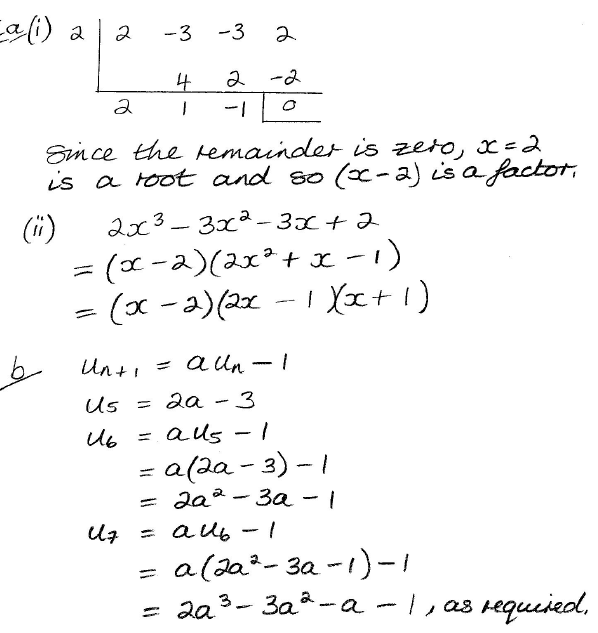 a(i) 2 | 2 -3 -3 2
4 2 -2
2 1 -1 | 0
Since the remainder is zero, x = 2
is a root and so (x - 2) is a factor.
(ii) 2x³ - 3x² - 3x + 2
= (x - 2)(2x² + x - 1)
= (x - 2)(2x - 1)(x + 1)
b uₙ₊₁ = auₙ - 1
u₅ = 2a - 3
u₆ = au₅ - 1
= a(2a - 3) - 1
= 2a² - 3a - 1
u₇ = au₆ - 1
= a(2a² - 3a - 1) - 1
= 2a³ - 3a² - a - 1, as required.